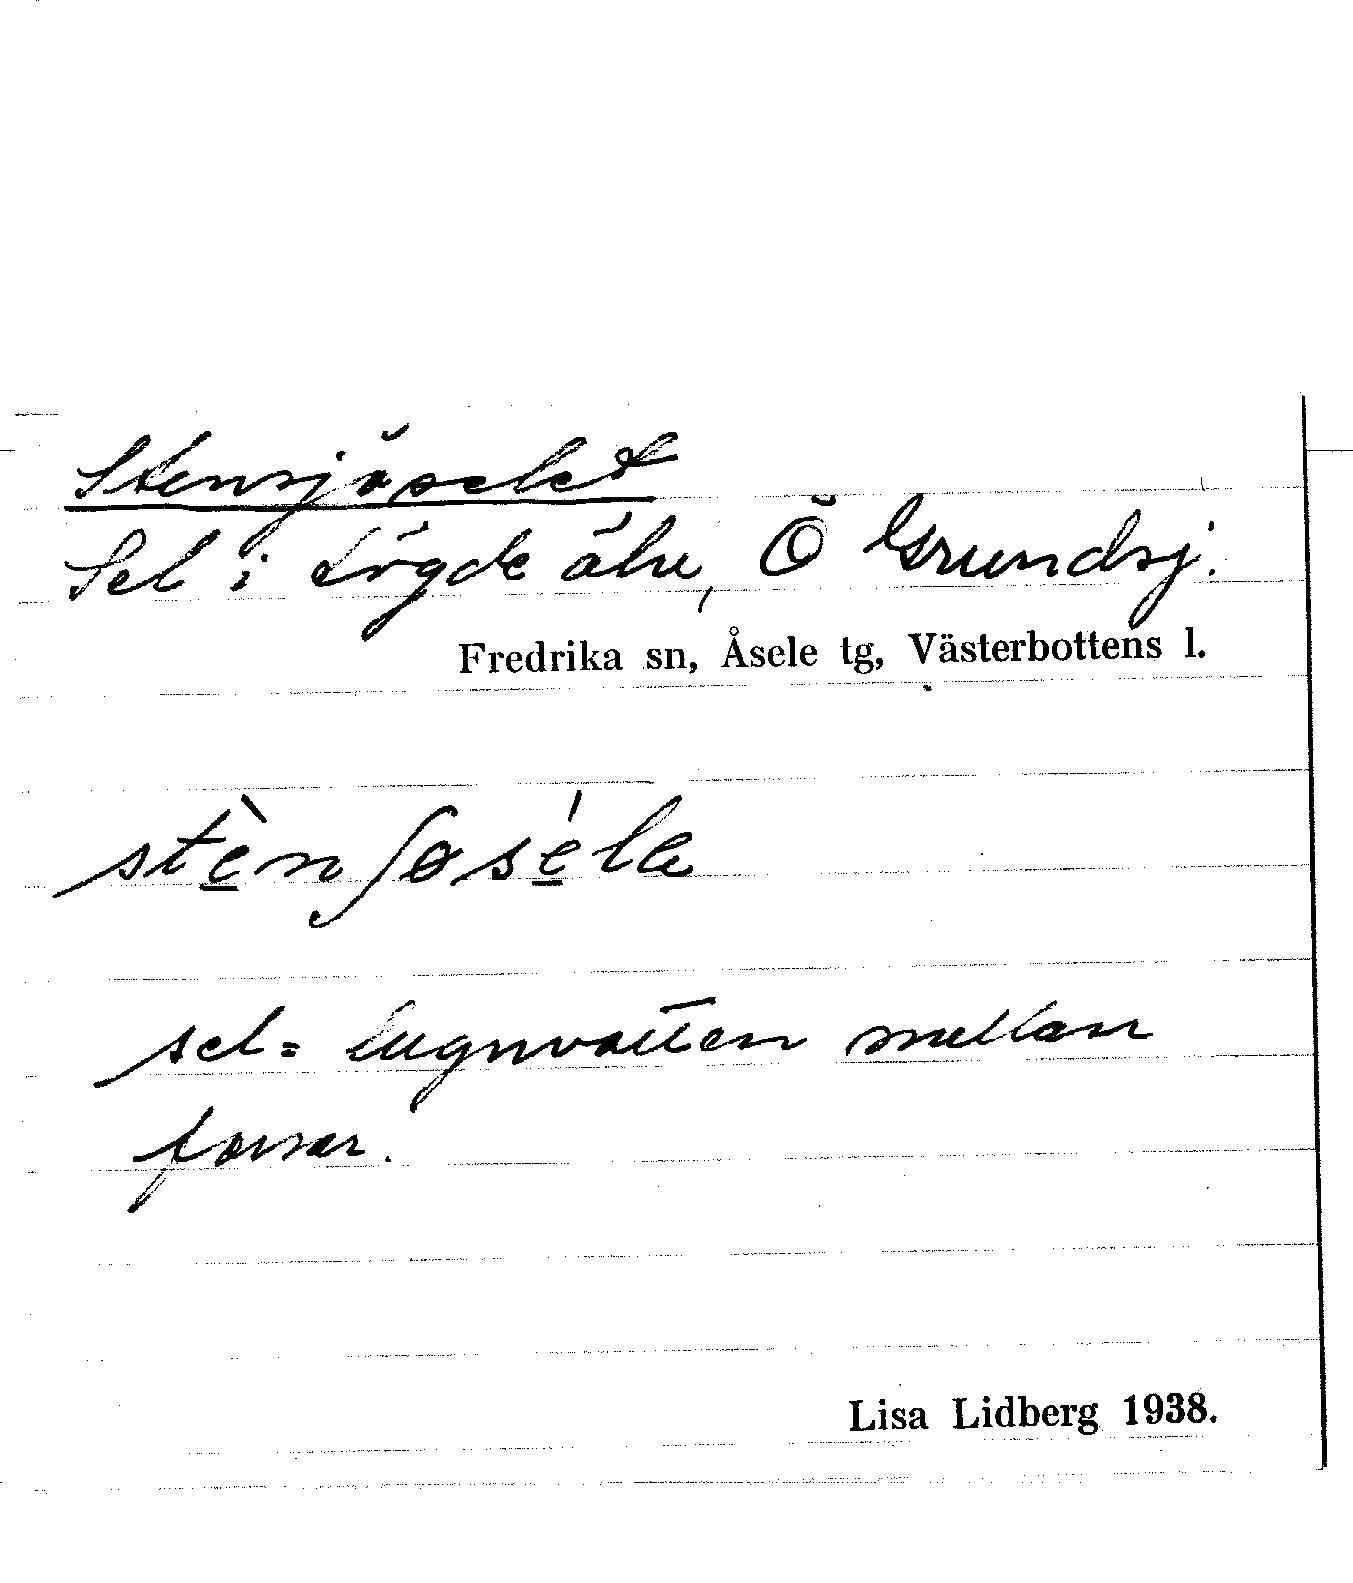 Stensjöselet
Sel i Lögde älv, Ö Grundsj.
Fredrika sn, Åsele tg, Västerbottens l.
stè̱nʃøsé̱la
sel = lugnvatten mellan
forsar.
Lisa Lidberg 1938.